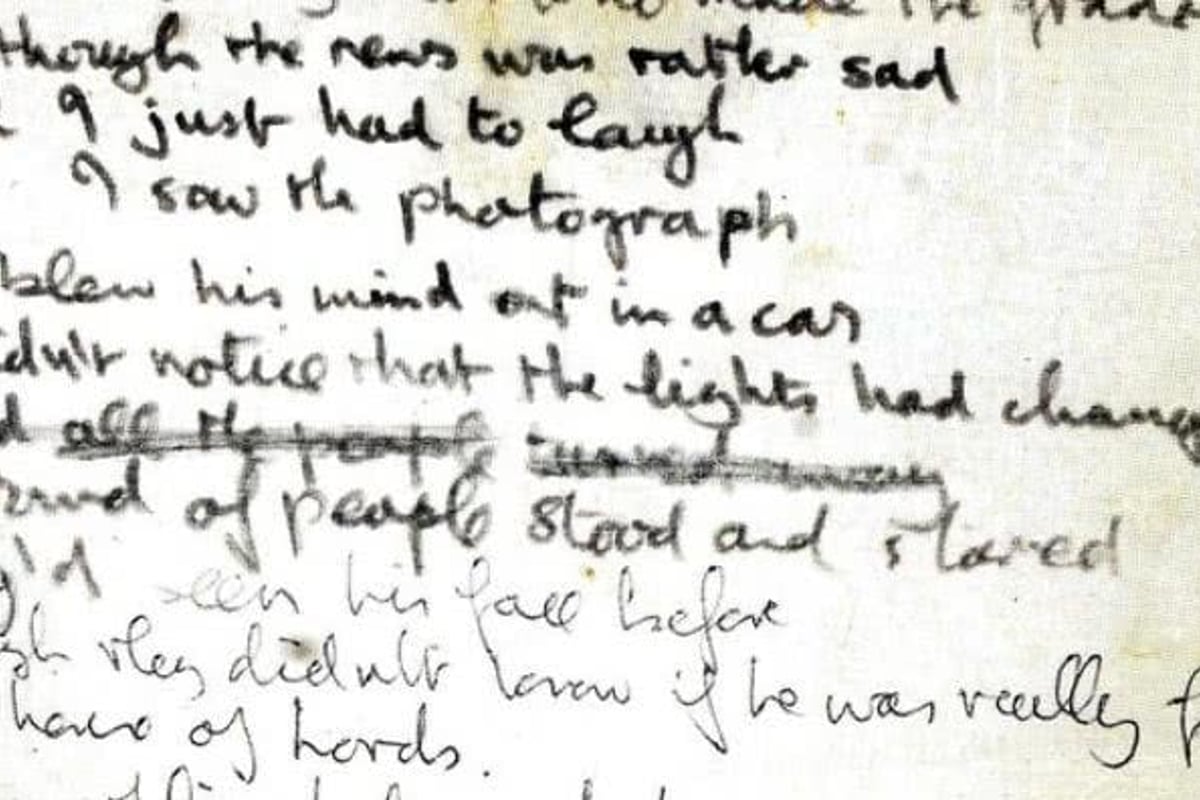 made the grade
though the news was rather sad
I just had to laugh
I saw the photograph
blew his mind out in a car
idn't notice that the lights had chang
d all the people turned away
rowd of people stood and stared
y'd seen his face before
gh they didn't know if he was really f
house of hords.